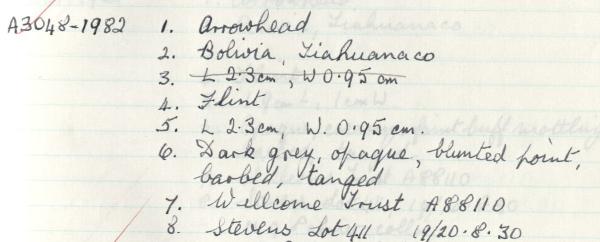 A3048-1982 1. Arrowhead
2. Bolivia, Tiahuanaco
3. L 2.3cm, W 0.95 cm
4. Flint
5. L 2.3cm, W 0.95 cm.
6. Dark grey, opaque, blunted point,
barbed, tanged
7. Wellcome Trust A88110
8. Stevens Lot 411 19/20.8.30